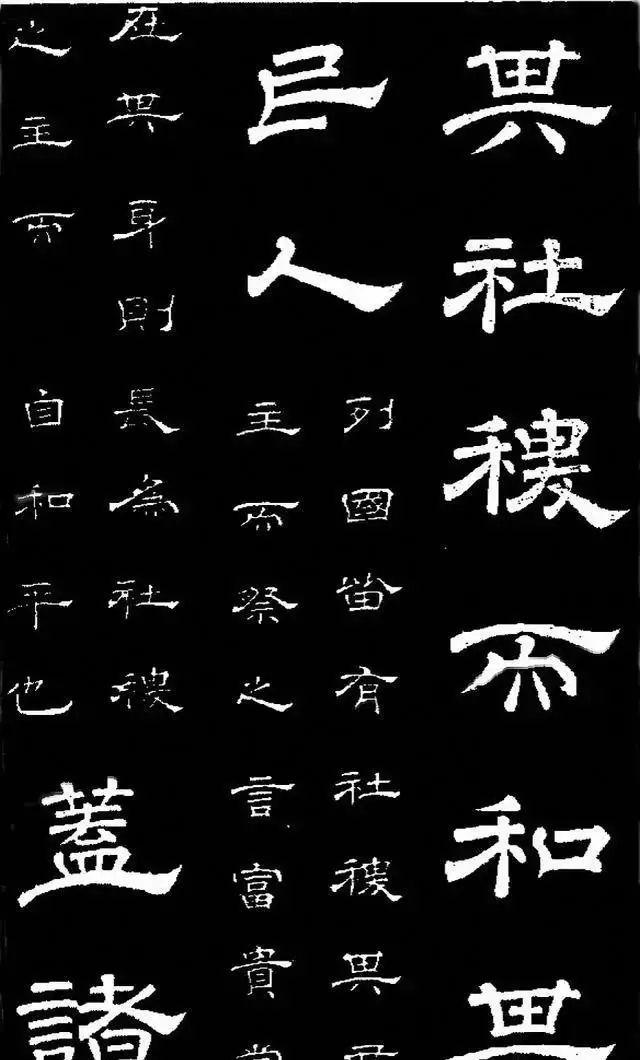 其社稷而和其
民人
列國皆有社稷其君
主而祭之言富貴常
在其身則長為社稷
之主而 自和平也
蓋諸